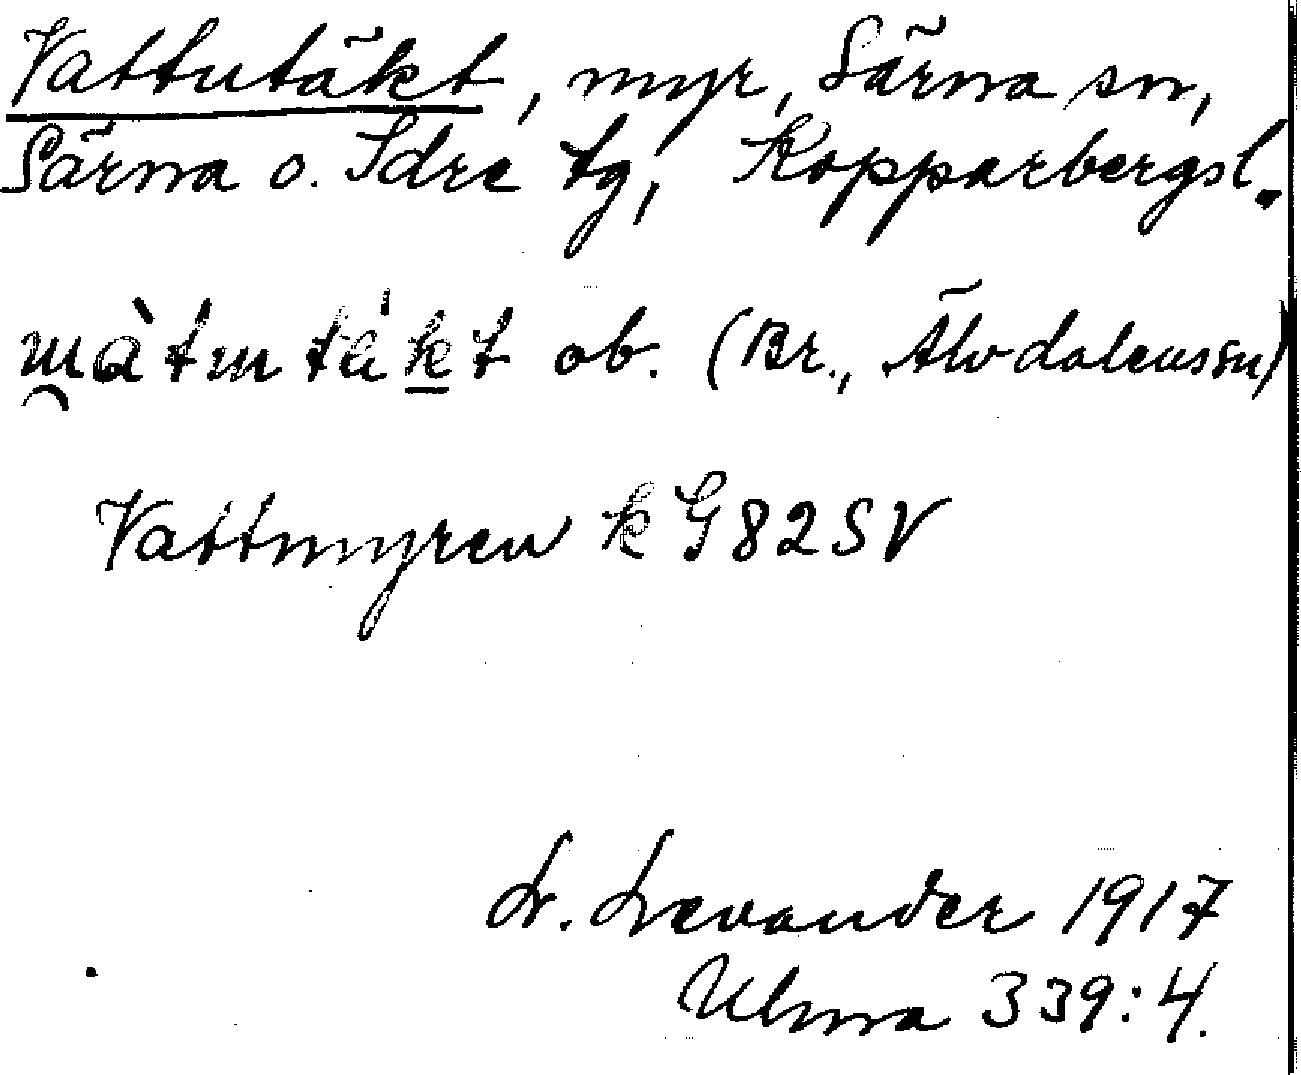 Vattutäkt, myr, Särna sn,
Särna o. Idre tg, Kopparbergsl.
ob. (Br., Älvdalenssn)
Vattmyren k G82SV
L. Levander 1917
Ulma 339:4.